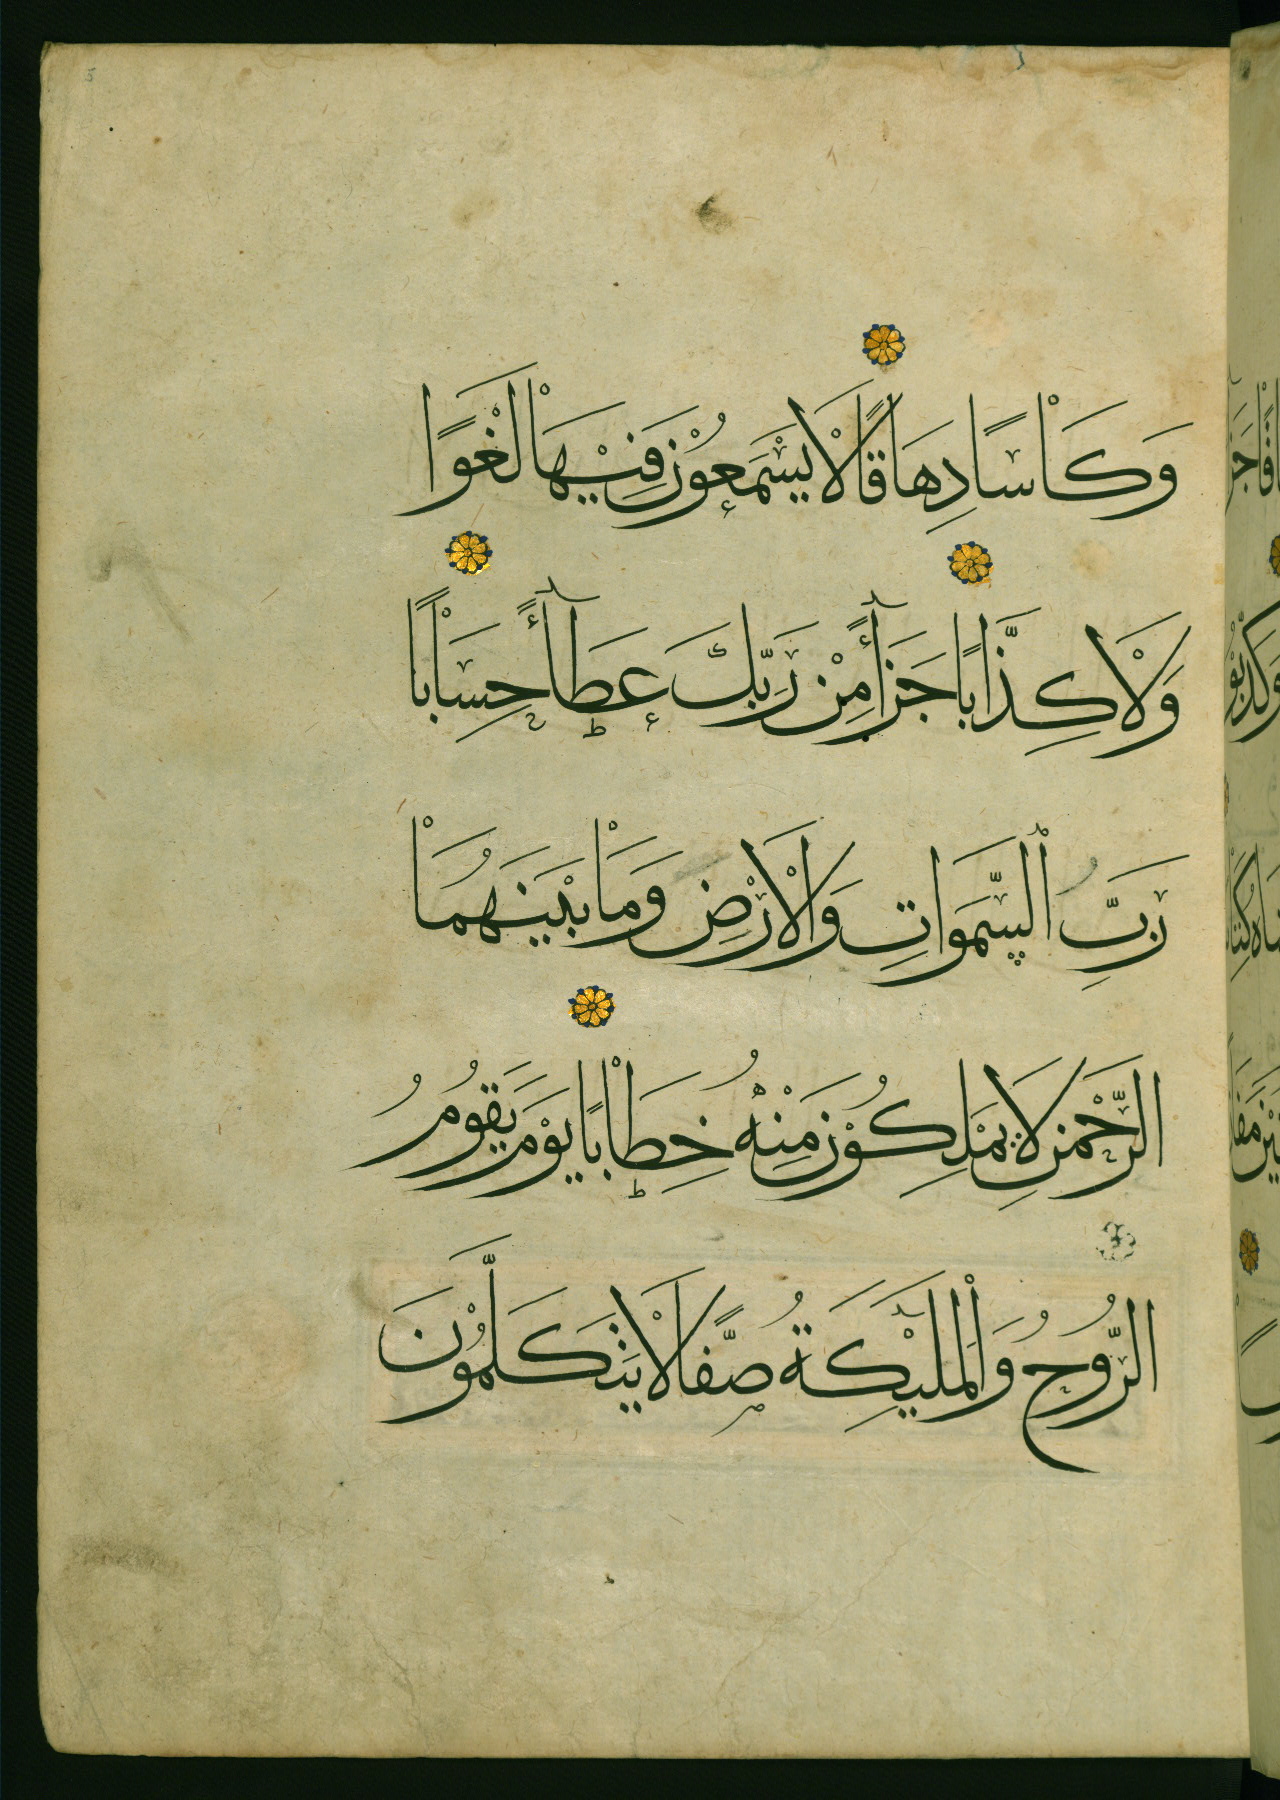 وَكَاْسًا دِهَاقًا لَاْ يَسْمَعُوْنَ فِيْهَاْ لَغْوًا
وَلَاْ كِذَّابًا جَزَآءً مِنْ رَبِّكَ عَطَآءً حِسَاْبًا
رَبِّ السَّمَوَاتِ وَالْاَرْضِ وَمَا بَيْنَهُمَاْ
الرَّحْمٰنِ لَا يَمْلِكُوْنَ مِنْهُ خِطَاْبًا يَوْمَ يَقُوْمُ
الرُّوْحُ وَالْمَلٰيِٕكَةُ صَفًّا لَاْ يَتَكَلَّمُوْنَ